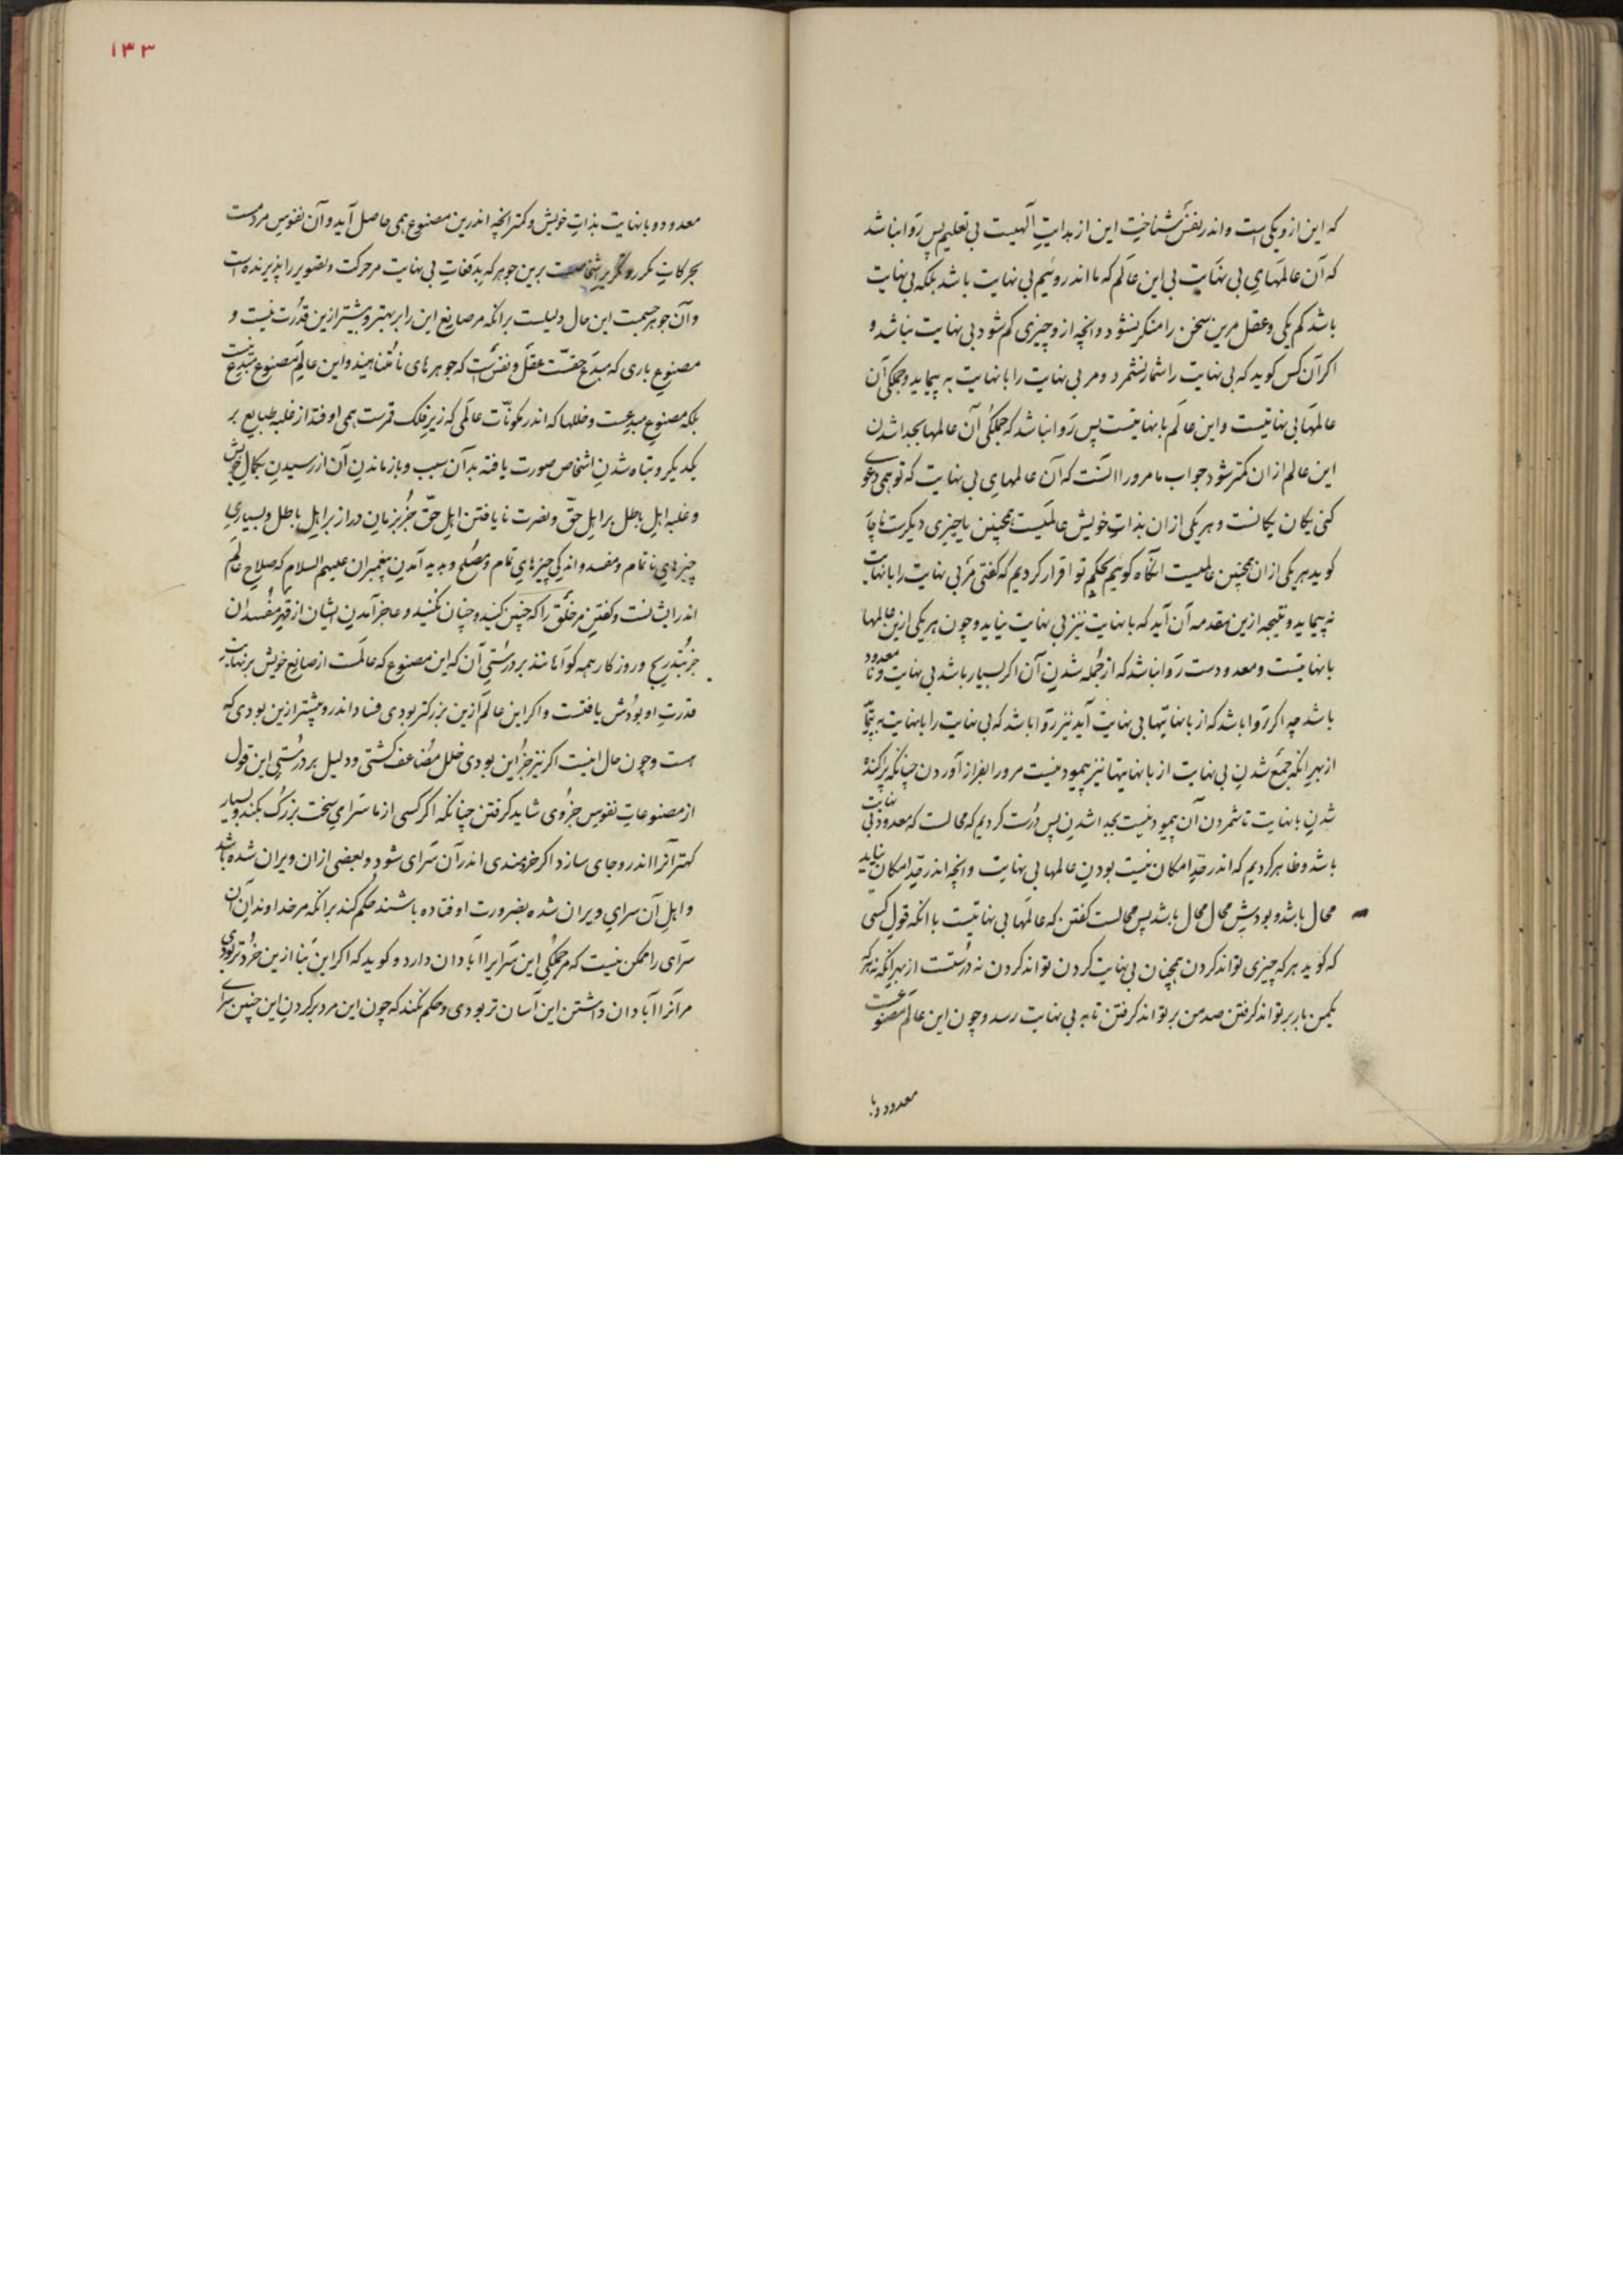 که این ازو یکی است و اندر نفس شناخت این از هدایت آلهیست بی تعلیم پس روا نباشد
که آن عالمهای بی نهایت بی این عالم که ما اندروئیم بی نهایت باشد بلکه بی نهایت
باشد کم یکی و عقل مرین سخن را منکر نشود و انچه ازو چیزی کم شود بی نهایت نباشد و
اکر آن کس کوید که بی نهایت را شمار نشمرد و مر بی نهایت را با نهایت نه پیماید و جملکی آن
عالمها بی نهایتست و این عالم با نهایتست پس روا نباشد که جملکی آن عالمها بجدا شدن
این عالم از ان کمتر شود جواب ما مرورا آنست که آن عالمهای بی نهایت که تو همی دعوی
کنی یکان یکانست و هر یکی از ان بذات خویش عالمیست همچنین یا چیزی دیکرست ناچار
کوید هر یکی از ان همچنین عالمیست آنکاه کوئیم بحکم تو اقرار کردیم که کفتی مر بی نهایت را با نهایت
نه پیماید و نتیجه ازین مقدمه آن آید که با نهایت نیز بی نهایت نیاید و چون هر یکی ازین عالمها
با نهایتست و معدودست روا نباشد که از جمله شدن آن اکر بسیار باشد بی نهایت و نا معدود
باشد چه اکر روا باشد که از با نهایتها بی نهایت آید نیز روا باشد که بی نهایت را با نهایت بپیماید
از بهر آنکه جمع شدن بی نهایت از با نهایتها نیز پیمودنیست مرورا بفراز آوردن چنانکه پراکنده
شدن با نهایت تا شمردن آن پیمودنیست بجدا شدن پس درست کردیم که محالست که معدود بی نهایت
باشد و ظاهر کردیم که اندر حد امکان نیست بودن عالمها بی نهایت و انچه اندر حد امکان نیاید
محال باشد و بودش محال محال باشد پس محالست کفتن که عالمها بی نهایتست با آنکه قول کسی
که کوید هر که چیزی تواند کردن همچنان بی نهایت کردن تواند کردن نه درستست از بهر آنکه نه هر که
یکمن بار بر تواند کرفتن صد من بر تواند کرفتن تا به بی نهایت رسد و چون این عالم مصنوعست
معدود و با
۱۳۳
معدود و با نهایت بذات خویش و کمتر انچه اندرین مصنوع همی حاصل آید و آن نفوس مردمست
بحرکات مکرر و برین جوهر که بدفعات بی نهایت مر حرکت و تصویر را پذیرنده است
و آن جوهر جسمست این حال دلیلست بر انکه مر صانع این را بر بهتر و بیشتر ازین قدرت نیست و
مصنوع باری که مبدع حقست عقل و نفس است که جوهرهای نا متناهیند و این عالم مصنوع مبدع نیست
بلکه مصنوع مبدعست و خللها که اندر مکونات عالمی که زیر فلک قمرست همی اوفتد از غلبه طبایع بر
یکدیکر و تباه شدن اشخاص صورت یافته بدآن سبب و باز ماندن آن از رسیدن بکمال خویش
و غلبه اهل باطل بر اهل حق و نصرت نا یافتن اهل حق جز بزمان دراز بر اهل باطل و بسیاری
چیزهای نا تمام و مفسد و اندکی چیزهای تمام و مصلح و بدید آمدن پیغمبران علیهم السلام که صلاح عالم
اندر ایشانست و کفتن مر خلق را که چنین کنید و چنان نکنید و عاجز آمدن ایشان از قهر مفسدان
جز بتدریج و روزکار همه کواهانند بر درستی آن که این مصنوع که عالمست از صانع خویش بر نهایت
قدرت او بودش یافتست و اکر این عالم ازین بزرکتر بودی فساد اندرو بیشتر ازین بودی که
هست و چون حال اینست اکر نیز جز این بودی خلل مضاعف کشتی و دلیل بر درستی این قول
از مصنوعات نفوس جزوی شاید کرفتن چنانکه اکر کسی از ما سرای سخت بزرک بکند و بسیار
کهتر آنرا اندرو جای سازد اکر خردمندی اندر آن سرای شود و بعضی ازان ویران شده باشد
و اهل آن سرای ویران شده بضرورت اوفتاده باشند حکم کند بر انکه مر خداوند آن
سرای را ممکن نیست که مر جملکی این سرایرا آبادان دارد و کوید که اکر این بنا ازین خردتر بودی
مر آنرا آبادان داشتن این آسان تر بودی و حکم نکند که چون این مرد بر کردن این چنین سرای